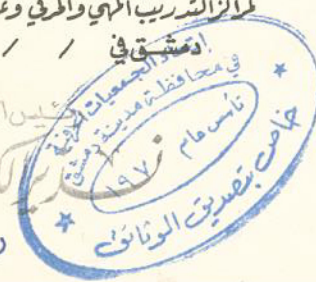 لمراكز التدريب المهني والحرفي وع
دمشق في / /
اتحاد الجمعيات الحرفية
في محافظة مدينة دمشق
تأسس عام
١٩٧٠
خاص بتصديق الوثائق